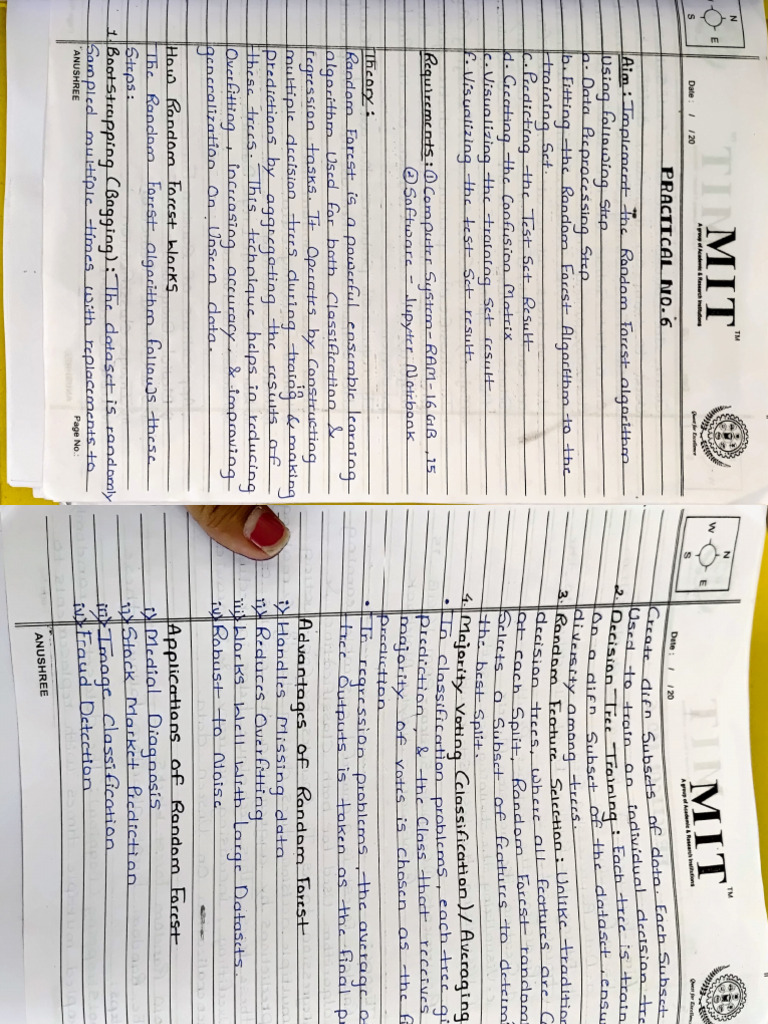 N
E
S
MIT
TM
A group of Academic & Research Institutions
Quest for Excellence
Date : / / 20
PRACTICAL NO. 6
Aim : Implement the Random Forest algorithm
Using following Step
a. Data Preprocessing Step
b. Fitting the Random Forest Algorithm to the
training Set
c. Predicting the Test Set Result
d. Creating the Confusion Matrix
e. Visualizing the training Set result
f. Visualizing the test Set result.
Requirements : ① Computer System - RAM - 16GB, i5
② Software - Jupyter Notebook
Theory :
Random Forest is a powerful ensemble learning
algorithm Used for both Classification &
regression tasks. It Operates by Constructing
multiple decision trees during training & making
predictions by aggregating the results of
these trees. This technique helps in reducing
Overfitting, increasing accuracy, & improving
generalization on Unseen data.
How Random Forest Works
The Random Forest algorithm follows these
Steps :
1. Bootstrapping (Bagging) : The dataset is randomly
Sampled multiple times with replacements to
ANUSHREE
Page No.:
N
W
E
S
MIT
TM
A group of Academic & Research Institutions
Quest for Excellence
Date : / / 20
Create difn Subsets of data. Each Subset
Used to train an individual decision tre
2. Decision Tree Training : Each tree is train
on a difn Subset of the dataset, ensu
diversity among trees.
3. Random Feature Selection : Unlike tradition
decision trees, where all features are C
at each split, Random Forest random
Selects a Subset of features to determi
the best split.
4. Majority Voting (classification) / Averaging
• In classification problems, each tree gi
prediction, & the Class that receives
majority of votes is chosen as the f
prediction
• In regression problems, the average o
tree Outputs is taken as the final pr
Advantages of Random Forest
i) Handles Missing data
ii) Reduces Overfitting
iii) Works Well With Large Datasets.
iv) Robust to Noise
Applications of Random Forest
i) Medial Diagnosis
ii) Stock Market Prediction
iii) Image Classification
iv) Fraud Detection
ANUSHREE